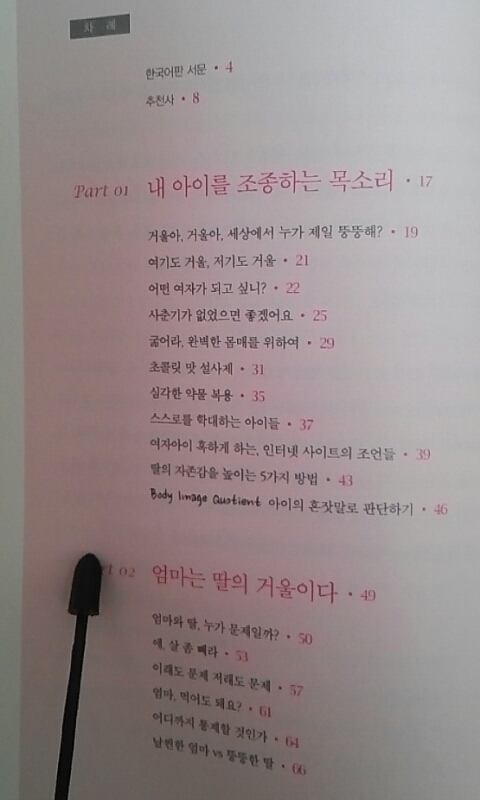 차 례
한국어판 서문 • 4
추천사 • 8
Part 01 내 아이를 조종하는 목소리 • 17
거울아, 거울아, 세상에서 누가 제일 뚱뚱해? • 19
여기도 거울, 저기도 거울 • 21
어떤 여자가 되고 싶니? • 22
사춘기가 없었으면 좋겠어요 • 25
굶어라, 완벽한 몸매를 위하여 • 29
초콜릿 맛 설사제 • 31
심각한 약물 복용 • 35
스스로를 학대하는 아이들 • 37
여자아이 혹하게 하는, 인터넷 사이트의 조언들 • 39
딸의 자존감을 높이는 5가지 방법 • 43
Body Image Quotient 아이의 혼잣말로 판단하기 • 46
rt 02 엄마는 딸의 거울이다 • 49
엄마와 딸, 누가 문제일까? • 50
얘, 살 좀 빼라 • 53
이래도 문제 저래도 문제 • 57
엄마, 먹어도 돼요? • 61
어디까지 통제할 것인가 • 64
날씬한 엄마 vs 뚱뚱한 딸 • 66